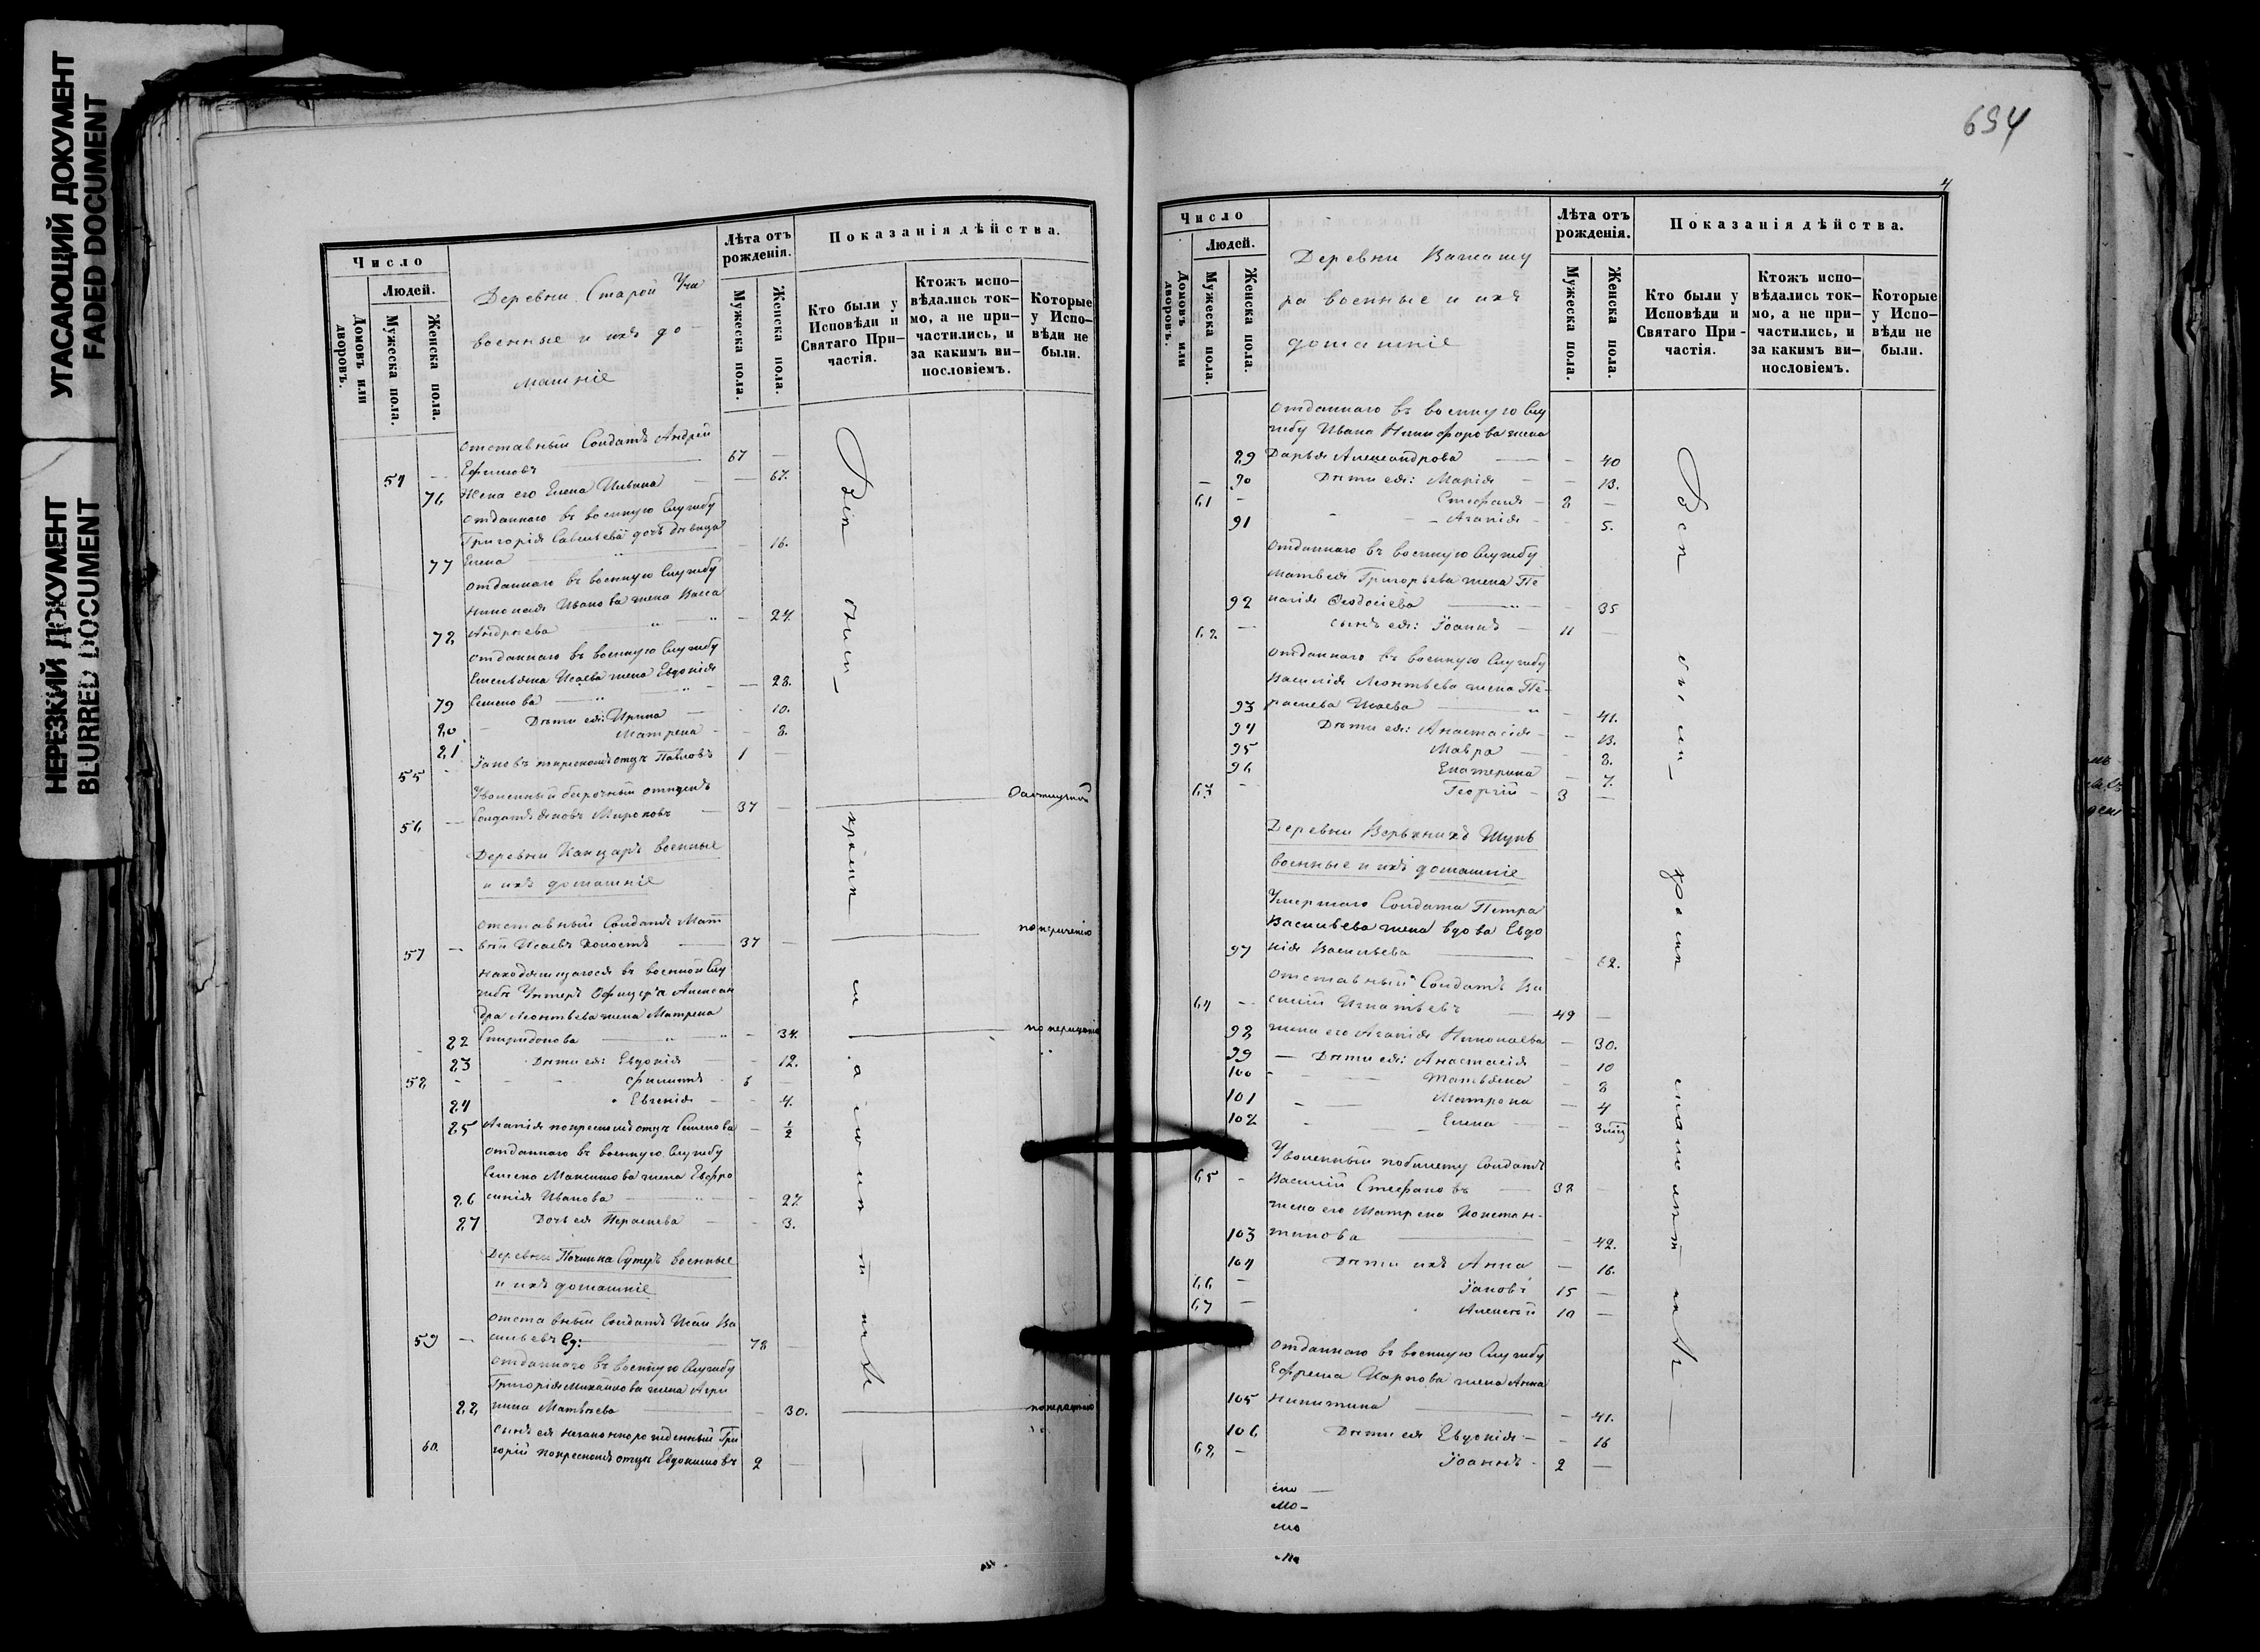 УГАСАЮЩИЙ ДОКУМЕНТ
FADED DOCUMENT
НЕРЕЗКИЙ ДОКУМЕНТ
BLURRED DOCUMENT
Число
Людей.
Домовъ или дворовъ.
Мужеска пола.
Женска пола.
Деревни Старой Учи
военные и ихъ до-
машніе
Лѣта отъ рожденія.
Мужеска пола.
Женска пола.
Показанія дѣйства.
Кто были у Исповѣди и Святаго Причастія.
Ктожъ исповѣдались токмо, а не причастились, и за какимъ винословіемъ.
Которые у Исповѣди не были.
отставный Солдатъ Андрей
54 — Ефимовъ 67 —
76 Жена его Елена Ильина — 67.
отданнаго въ военную службу
Григорія Савельева дочь дѣвица
77 Елена — 16.
отданнаго въ военную службу
Николая Иванова жена Васса
78 Андреева — 24.
отданнаго въ военную службу
Емельяна Исаева жена Евдокія
79 Семенова — 28.
80 Дѣти ея: Ирина — 10.
81 Матрена — 8.
55 - Іаковъ по крестномъ отцѣ Павловъ 1 —
Уволенный въ срочный отпускъ
56 — Солдатъ Яковъ Мироновъ — 37 —
Деревни Канцаръ военные
и ихъ домашніе
отставный Солдатъ Мат
57 — вѣй Исаевъ холостъ 37 —
находящагося въ военной слу
жбѣ Унтеръ Офицера Алексан
дра Леонтьева жена Матрена
82 Спиридонова — 34.
83 Дѣти ея: Евдокія — 12.
58 - Филиппъ 6 —
84 Евгенія — 4.
85 Агапія по крестномъ отцѣ Семенова — 1/2
отданнаго въ военную службу
Семена Максимова жена Евфро
86 синія Иванова — 27.
87 Дочь ея Параскева — 3.
Деревни Починка Сутеръ военные
и ихъ домашніе
отставный Солдатъ Иван Ва
59 — сильевъ 78 —
отданнаго въ военную службу
Григорія Михайлова жена Агри
88 пина Матвѣева — 30.
сынъ ея незаконнорожденный Гри
60 горій по крестномъ отцѣ Евдокимовъ 2 —
Всѣ были
694
4
Число
Людей.
Домовъ или дворовъ.
Мужеска пола.
Женска пола.
Деревни Важашу
ра военные и ихъ
домашніе
Лѣта отъ рожденія.
Мужеска пола.
Женска пола.
Показанія дѣйства.
Кто были у Исповѣди и Святаго Причастія.
Ктожъ исповѣдались токмо, а не причастились, и за какимъ винословіемъ.
Которые у Исповѣди не были.
отданнаго въ военную слу
жбу Ивана Никифорова жена
89 Дарья Александрова — 40
90 Дѣти ея: Марія — 13.
61 - Стефанъ — 8 —
91 Агапія — 5.
отданнаго въ военную службу
Матвея Григорьева жена Пе
92 лагія Ѳеодосіева — 35
62 — сынъ ея: Іоаннъ — 11 —
отданнаго въ военную службу
Василія Леонтьева жена Па-
93 раскева Исаева — 41.
94 Дѣти ея: Анастасія — 13.
95 Мавра — 8.
96 Екатерина — 7.
63 - Георгій — 3 —
Деревни Верхнихъ Шунь
военные и ихъ домашніе
Умершаго Солдата Петра
Васильева жена вдова Евдо
97 кія Васильева — 62.
отставный Солдатъ Ва
64 — силій Игнатьевъ — 49 —
98 жена его Агапія Николаева — 30.
99 — Дѣти ея: Анастасія — 10
100 Татьяна — 8
101 Матрона — 4
102 Елена — 3 мѣц
Уволенный по билету Солдатъ
65 - Василій Стефановъ — 38
жена его Матрена Констан-
103 тинова — 42.
104 Дѣти ихъ Анна — 16.
66 — Іаковъ 15 —
67 — Алексѣй 10 —
отданнаго въ военную службу
Ефрема Карпова жена Анна
105 Никитина — 41.
106 Дѣти ея Евдокія — 16
68 — Іоаннъ — 2 —
Всѣ были кромѣ малолѣт